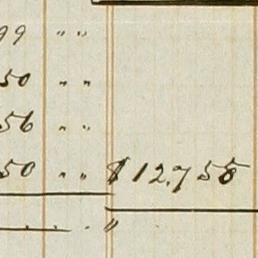 99 " "
50 " "
56 " "
50 " " $12.758
"